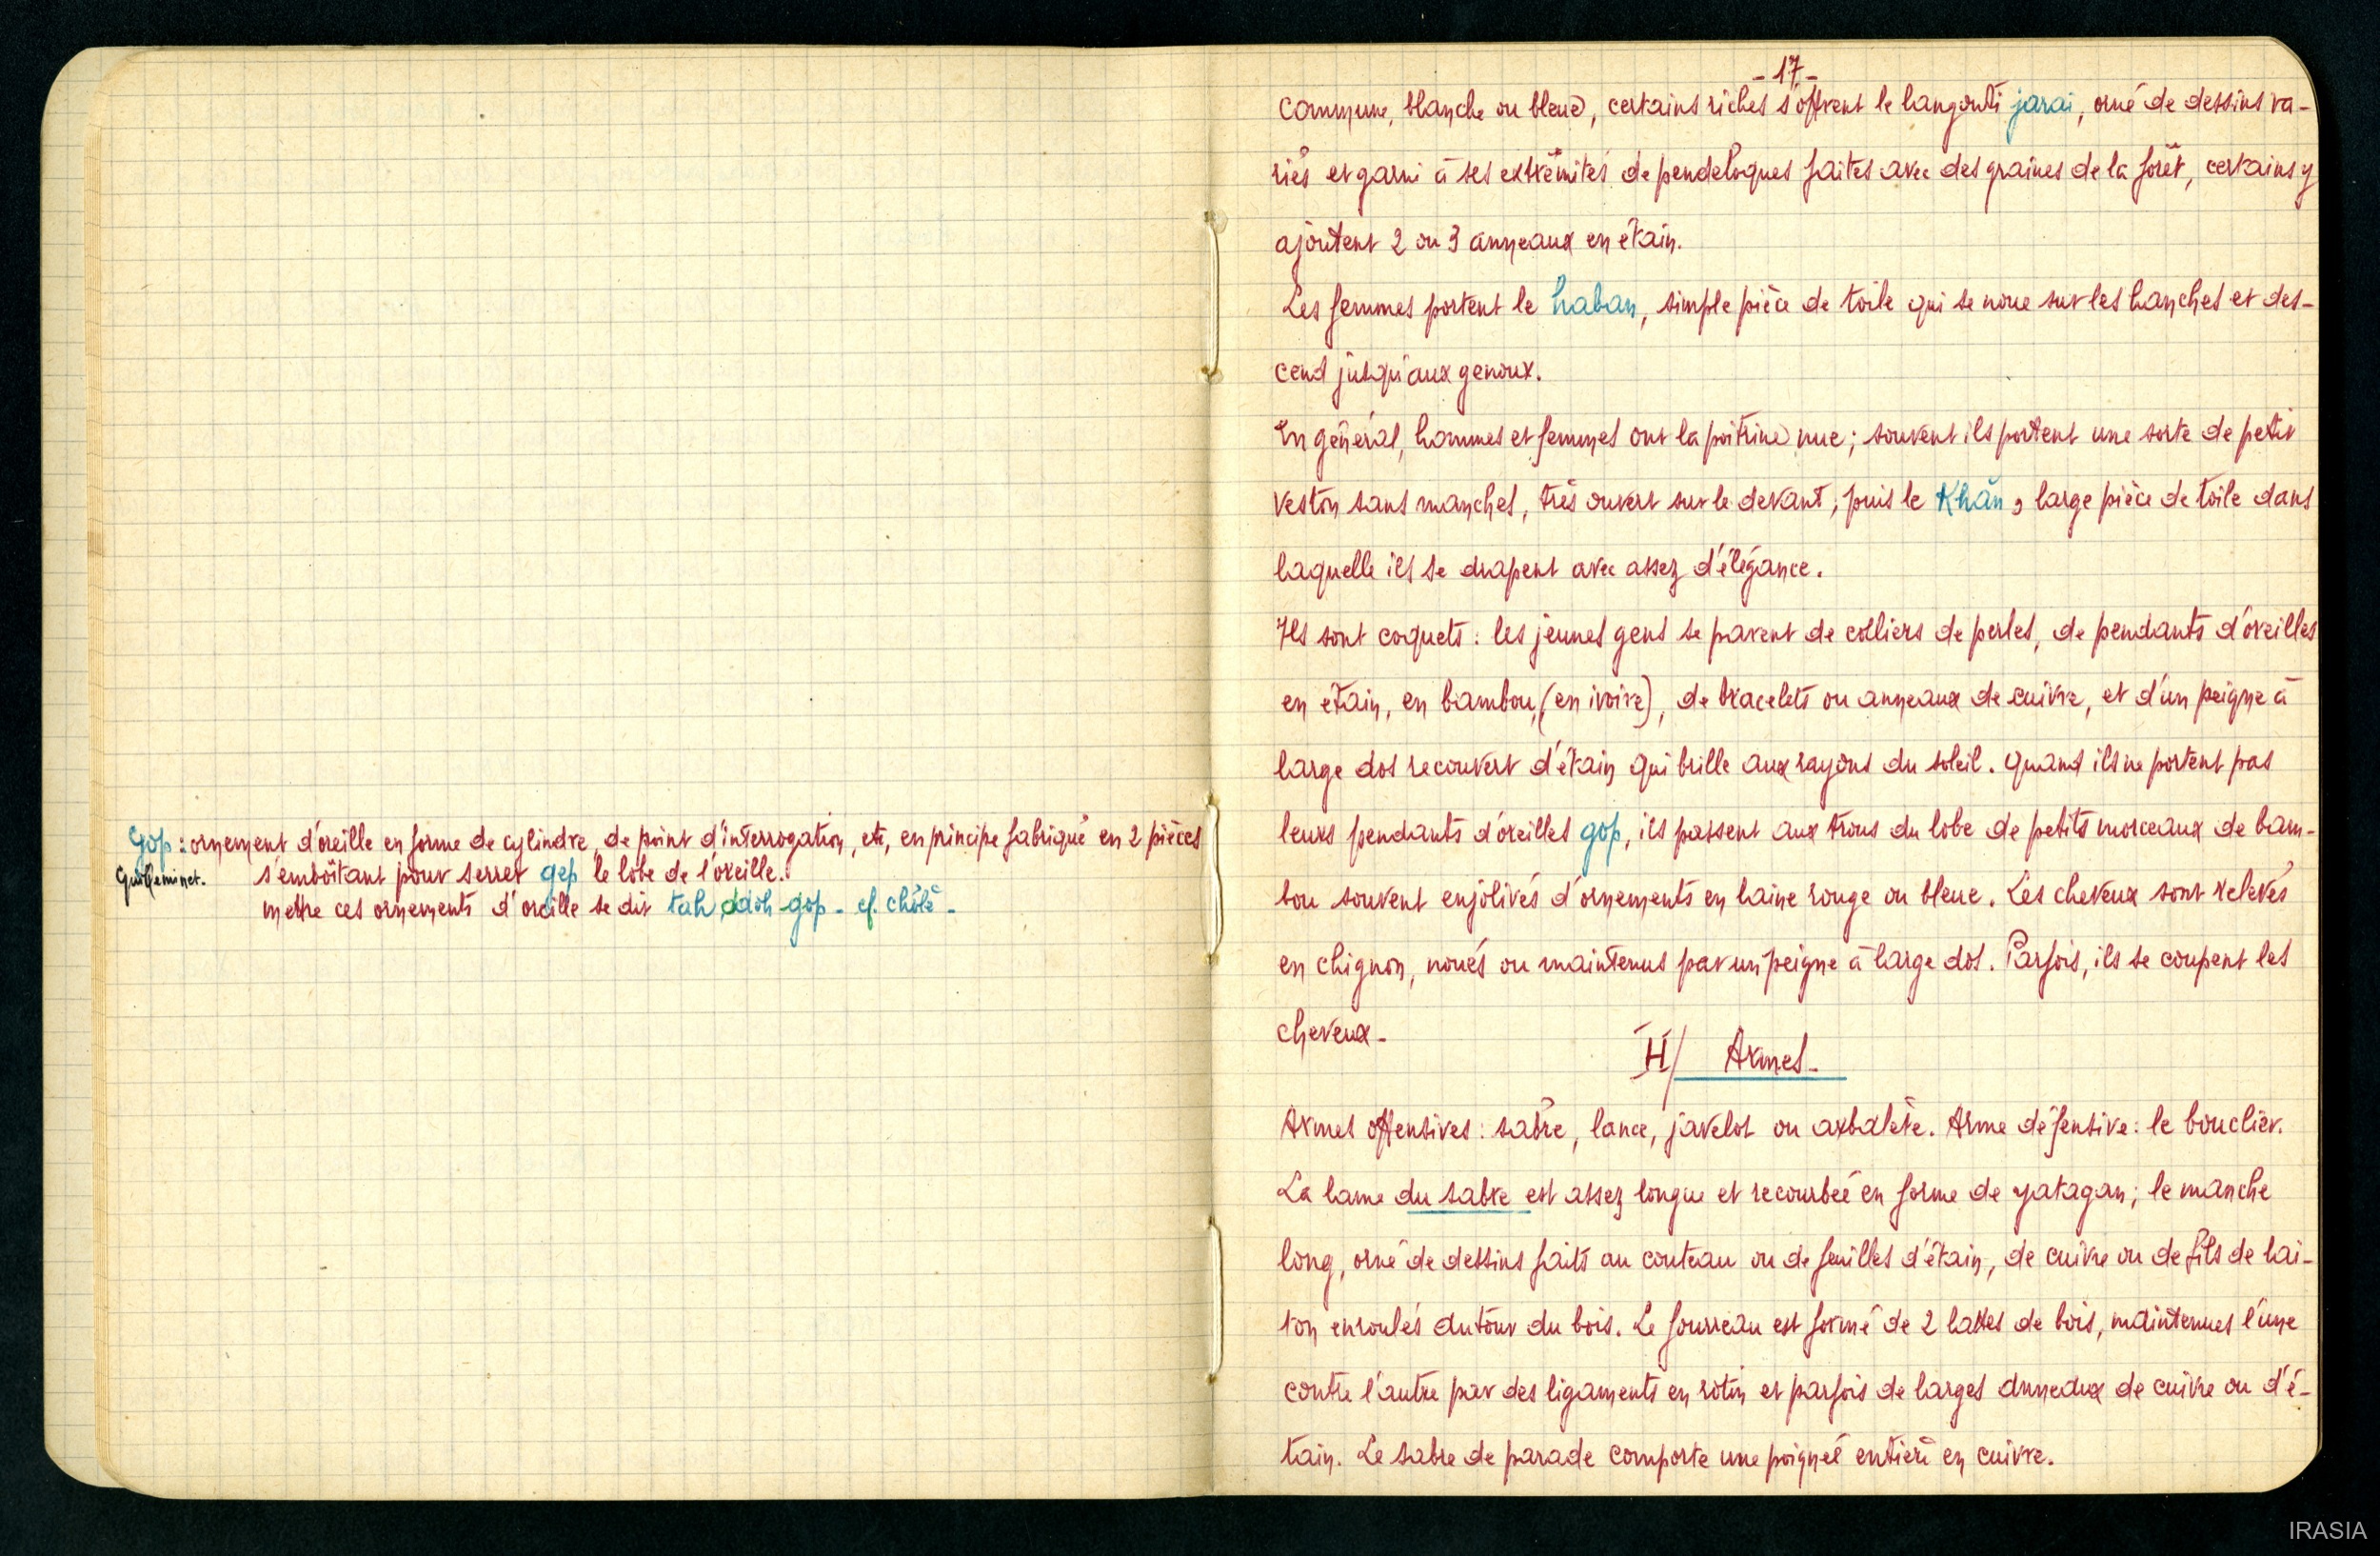 Gop : ornement d'oreille en forme de cylindre, de point d'interrogation, etc, en principe fabriqué en 2 pièces
Guilleminet. s'emboîtant pour serrer gep le lobe de l'oreille.
mettre ces ornements d'oreille se dit tah ddoh gop - cf. chôlê -
- 17 -
commune, blanche ou bleue, certains riches s'offrent le langouti jarai, orné de dessins va-
riés et garni à ses extrémités de pendeloques faites avec des graines de la forêt, certains y
ajoutent 2 ou 3 anneaux en étain.
Les femmes portent le haban, simple pièce de toile qui se noue sur les hanches et des-
cend jusqu'aux genoux.
En général, hommes et femmes ont la poitrine nue ; souvent ils portent une sorte de petit
veston sans manches, très ouvert sur le devant ; puis le Khăn, large pièce de toile dans
laquelle ils se drapent avec assez d'élégance.
Ils sont coquets : les jeunes gens se parent de colliers de perles, de pendants d'oreilles
en étain, en bambou, (en ivoire), de bracelets ou anneaux de cuivre, et d'un peigne à
large dos recouvert d'étain qui brille aux rayons du soleil. Quand ils ne portent pas
leurs pendants d'oreilles gop, ils passent aux trous du lobe de petits morceaux de bam-
bou souvent enjolivés d'ornements en laine rouge ou bleue. Les cheveux sont relevés
en chignon, noués ou maintenus par un peigne à large dos. Parfois, ils se coupent les
cheveux -
H/ Armes -
Armes offensives : sabre, lance, javelot ou arbalète. Arme défensive : le bouclier.
La lame du sabre est assez longue et recourbée en forme de yatagan ; le manche
long, orné de dessins faits au couteau ou de feuilles d'étain, de cuivre ou de fils de lai-
ton enroulés autour du bois. Le fourreau est formé de 2 lattes de bois, maintenues l'une
contre l'autre par des ligaments en rotin et parfois de larges anneaux de cuivre ou d'é-
tain. Le sabre de parade comporte une poignée entière en cuivre.
IRASIA